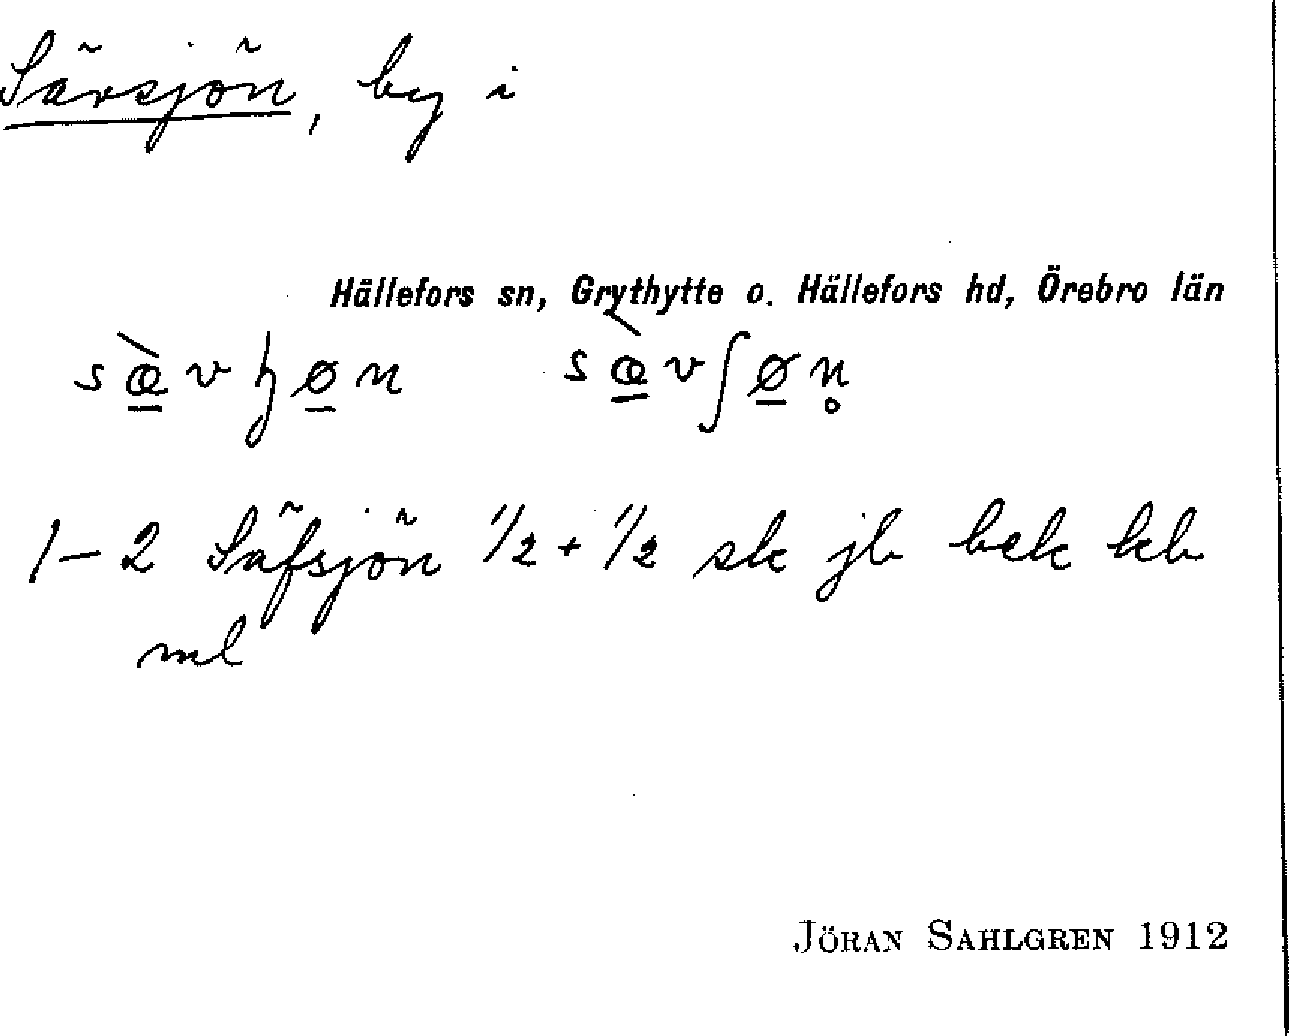 Sävsjön, by i
Hällefors sn, Grythytte o. Hällefors hd, Örebro län
1–2 Säfsjön 1/2 + 1/2 sk jb bek kb
ml
JÖRAN SAHLGREN 1912